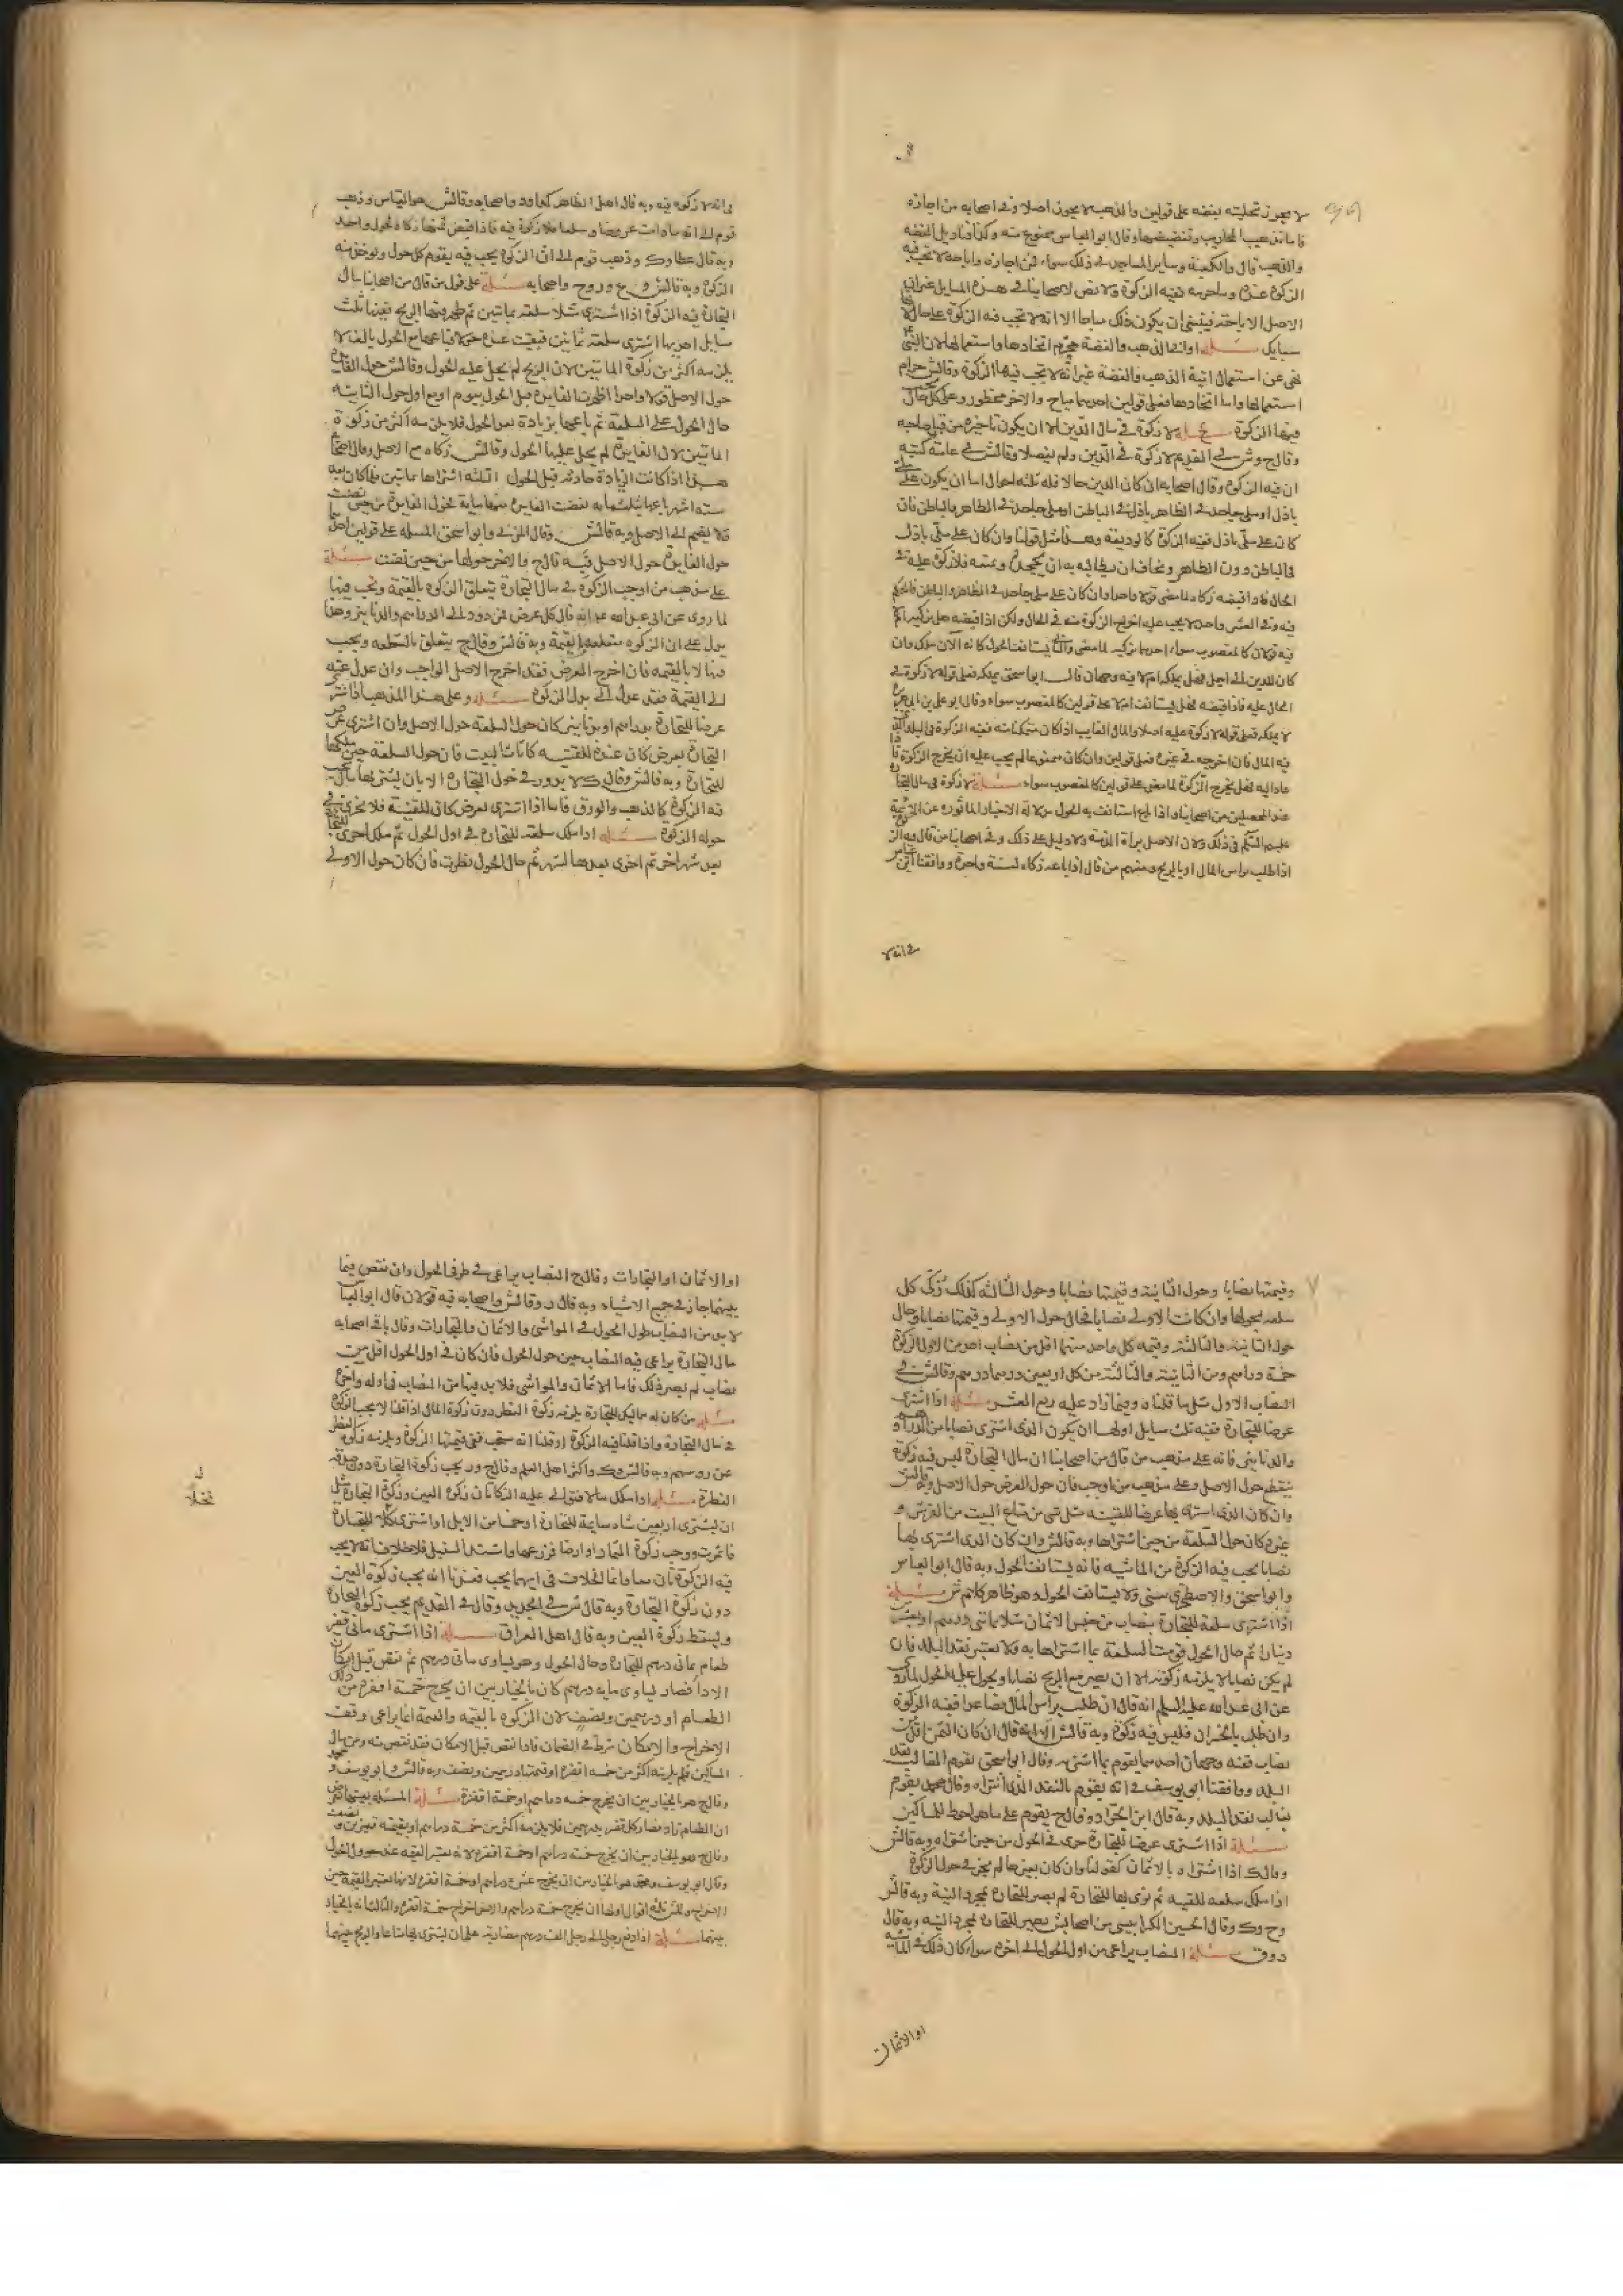 لا يجوز تحليته بفضه على قولين والذهب لا يجوز اصلا وفي اصحابه من اجازه
فاما تذهيب المحاريب وتفضيضها وقال ابو العباس ممنوع منه وكذا قناديل الفضه
والذهب قال والكعبة وساير المساجد في ذلك سواء فمن اجازه واباحه لا تجب فيه
الزكوة عنده ومن حرمه ففيه الزكوة ولا نص لاصحابنا في هذه المسايل غير ان
الاصل الاباحة فينبغي ان يكون ذلك مباحا الا انه لا تجب فيه الزكوة على حال لانها
سبايك مسئلة اواني الذهب والفضة محرم اتخاذها واستعمالها لان النبي
نهى عن استعمال انية الذهب والفضة غير انه لا تجب فيها الزكوة وقال ش حرام
استعمالها واما اتخاذها فعلى قولين احدهما مباح والاخر محظور وعلى كل حال تجب
فيها الزكوة مسئلة لا زكوة في مال الدين الا ان يكون تاخيره من قبل صاحبه
وقال ح وش في القديم لا زكوة في الدين ولم يفصلا وقال ش في عامة كتبه
ان فيه الزكوة وقال اصحابه ان كان الدين حالا فله ثلثه احوال اما ان يكون على ملي
باذل او ملي جاحد في الظاهر باذل في الباطن او ملي جاحد في الظاهر والباطن فان
كان على ملي باذل ففيه الزكوة كالوديعة وهذا مثل قولنا وان كان على ملي باذل
في الباطن دون الظاهر ويخاف ان يطالبه به ان يجحده ويمنعه فلا زكوة عليه في
الحال فاذا قبضه زكاه لما مضى قولا واحدا وان كان على ملي جاحد في الظاهر والباطن فالحكم
فيه وفي المعسر واحد لا يجب عليه اخراج الزكوة منه في الحال ولكن اذا قبضه هل يزكيه ام لا
فيه قولان كالمغصوب سواء احدهما يزكيه لما مضى والثاني يستانف الحول كانه الان ملك وان
كان للدين الى اجل فهل يملكه ام لا فيه وجهان قال ابو اسحق يملكه فعلى قوله لا زكوة في
الحال عليه فاذا قبضه فهل يستانف ام لا على قولين كالمغصوب سواء وقال ابو علي بن ابي هريرة
لا يملكه فعلى قوله لا زكوة عليه اصلا والمال الغايب اذا كان متمكنا منه ففيه الزكوة في البلد الذي
فيه المال فان اخرجه في غيره فعلى قولين وان كان ممنوعا لم يجب عليه ان يخرج الزكوة فاذا
عاد اليه فهل يخرج الزكوة لما مضى على قولين كالمغصوب سواء مسئلة لا زكوة في مال التجارة
عند المحصلين من اصحابنا واذا باع استانف به الحول
عليهم السلم في ذلك ولان الاصل براءة الذمة ولا دليل على ذلك وفي اصحابنا من قال فيه الزكوة
اذا طلب براس المال او بالربح ومنهم من قال اذا باعه زكاه لسنة واحدة ووافقنا ابن عباس
في انه لا
في انه لا زكوة فيه وبه قال اهل الظاهر كداود واصحابه وقال ش هو القياس وذهب
قوم الى انه ما دامت عروضا وسلعا فلا زكوة فيه فاذا قبض ثمنها زكاه لحول واحد
وبه قال عطا وك وذهب قوم الى ان الزكوة يجب فيه يقوم كل حول ويوخذ منه
الزكوة وبه قال ش و ع و ر و ح واصحابه مسئلة على قول من قال من اصحابنا مال
التجارة فيه الزكوة اذا اشترى مثلا سلعة بماتين ثم ظهر فيها الربح ففيها ثلث
مسايل احديها اشترى سلعة بماتين فبقيت عنده حولا فباعها مع الحول بالف لا
يلزمه اكثر من زكوة الماتين لان الربح لم يحل عليه الحول وقال ش حول الفايدة
حول الاصل قولا واحدا اظهرت الفايدة قبل الحول بيوم او مع اول حول الثانيه
حال الحول على السلعة ثم باعها بزيادة بعد الحول فلا يلزمه اكثر من زكوة
الماتين لان الفايدة لم يحل عليها الحول وقال ش زكاه مع الاصل وقال اصحابه
هذا اذا كانت الزيادة حادثه قبل الحول الثلثه اشتراها بماتين فلما كان بعد
سته اشهر باعها بثلثمايه فنضت الفايدة منها مايه فحول الفايدة من حين نضت
فلا يضم الى الاصل وبه قال ش وقال المزني وابو اسحق المسئله على قولين احدهما
حول الفايدة حول الاصل وبه قال ح والاخر حولها من حين نضت مسئلة
على مذهب من اوجب الزكوة في مال التجارة يتعلق الزكوه بالقيمة وتجب فيها
لما روي عن ابي عبدالله ع انه قال كل عرض فمردود الى الدراهم والدنانير وهذا
يدل على ان الزكوه متعلقه بالقيمة وبه قال ش وقال ح يتعلق بالسلعه ويجب
فيها لا بالقيمه فان اخرج العرض فقد اخرج الاصل الواجب وان عدل عنه
الى القيمة فقد عدل الى بدل الزكوة مسئلة وعلى هذا المذهب اذا اشترى
عرضا للتجارة بدراهم او دنانير كان حول السلعة حول الاصل وان اشترى عرض
التجارة بعرض كان عنده للقنية كاثاث البيت فان حول السلعة حين ملكها
للتجارة وبه قال ش وقال ك لا يدور في حول التجارة الا بان يشتريها بمال تجب
فيه الزكوة كالذهب والورق فاما اذا اشترى بعرض كان للقنية فلا يجري في
حوله الزكوة مسئلة اذا ملك سلعة للتجارة في اول الحول ثم ملك اخرى للتجارة
بعد شهر اخر ثم اخرى بعدها لشهر ثم حال الحول نظرت فان كان حول الاولى
وقيمتها نصابا وحول الثانية وقيمتها نصابا وحول الثالثه كذلك زكى كل
سلعه بحولها وان كانت الاولى نصابا فحال حول الاولى وقيمتها نصابا وحال
حول الثانية والثالثة وقيمه كل واحد منهما اقل من نصاب اخرج من الاول الزكوة
خمسة دراهم ومن الثانية والثالثة من كل اربعين درهما درهم وقال ش في
النصاب الاول مثل ما قلناه وفيما زاد عليه ربع العشر مسئلة اذا اشترى
عرضا للتجارة ففيه ثلث مسايل اولها ان يكون الذي اشترى نصابا من الدراهم او
والدنانير فانه على مذهب من قال من اصحابنا ان مال التجارة ليس فيه زكوة
ينقطع حول الاصل وعلى مذهب من اوجب فان حول العرض حول الاصل وبه قال ش
وان كان الذي اشترى بها عرضا للقنية مثل شي من متاع البيت من الفرش و
غيره كان حول السلعة من حين اشتراها وبه قال ش وان كان الذي اشترى بها
نصابا تجب فيه الزكوة من الماشيه فانه يستانف الحول وبه قال ابو العباس
وابو اسحق والاصطخري يبني ولا يستانف الحول وهو ظاهر كلام ش مسئلة
اذا اشترى سلعة للتجارة بنصاب من جنس الاثمان مثلا بماتي درهم او بعشرين
دينارا ثم حال الحول قومت السلعة بما اشتراها به ولا يعتبر نقد البلد فان
لم يكن نصابا لا يلزمه زكوته الا ان يصير مع الربح نصابا ويحول عليه الحول لما روي
عن ابي عبد الله عليه السلم انه قال ان طلب براس المال فصاعدا ففيه الزكوة
وان طلب بالخسران فليس فيه زكوة وبه قال ش الا انه قال ان كان الثمن اقل من
نصاب ففيه وجهان احدهما يقوم بما اشترى به وقال ابو اسحق يقوم بغالب نقد
البلد ووافقنا ابو يوسف في انه يقوم بالنقد الذي اشتراه وقال محمد يقوم
بغالب نقد البلد وبه قال ابن الحداد وقال ح يقوم على ما هو احوط للمساكين
مسئلة اذا اشترى عرضا للتجارة جرى في الحول من حين اشتراه وبه قال ش
وقال ك اذا اشتراه بالاثمان كقولنا وان كان بغيرها لم يجز في حول الزكوة
اذا ملك سلعه للقنيه ثم نوى بها للتجارة لم يصر للتجارة بمجرد النية وبه قال ش
و ح و ك وقال الحسين الكرابيسي من اصحاب ش يصير للتجارة بمجرد النيه وبه قال
د و ق مسئلة النصاب يراعى من اول الحول الى اخره سواء كان ذلك في الماشيه
او الاثمان
او الاثمان او التجارات وقال ح النصاب يراعى في طرفي الحول وان نقص فيما
بينهما جاز في جميع الاشياء وبه قال ر وقال ش واصحابه فيه قولان قال ابو العباس
لا بد من النصاب طول الحول في المواشي والاثمان والتجارات وقال باقي اصحابه
مال التجارة يراعى فيه النصاب حين حول الحول فان كان في اول الحول اقل من
نصاب لم يضر ذلك فاما الاثمان والمواشي فلا بد فيها من النصاب في اوله واخره
مسئلة من كان له مماليك للتجارة يلزمه زكوة الفطر دون زكوة المال اذا قلنا لا يجب الزكوة
في مال التجارة واذا قلنا فيه الزكوة او قلنا انه مستحب ففي قيمتها الزكوة ويلزمه زكوة الفطر
عن روسهم وبه قال ش و ك واكثر اهل العلم وقال ح و ر يجب زكوة التجارة دون صدقه
الفطرة مسئلة اذا ملك مالا فتوالى عليه الزكاتان زكوة العين وزكوة التجارة مثل
ان يشترى اربعين شاه سايمة للتجارة او خمسا من الابل او اشترى نخلا للتجارة
فاثمرت ووجب زكوة الثمار او ارضا فزرعها واشتد السنبل فلا خلاف انه لا يجب
فيه الزكوتان معا وانما الخلاف في ايهما يجب فعندنا انه يجب زكوة العين
دون زكوة التجارة وبه قال ش في الجديد وقال في القديم يجب زكوة التجارة
ويسقط زكوة العين وبه قال اهل العراق مسئلة اذا اشترى مائتي قفيز
طعام بماتي درهم للتجارة وحال الحول وهو يساوي ماتي درهم ثم نقص قبل امكان
الادا فصار يساوى مايه درهم كان بالخيار بين ان يخرج خمسة اقفزه من ذلك
الطعام او درهمين ونصف لان الزكوه بالقيمه والقيمة انما يراعى وقت
الاخراج والامكان شرط في الضمان فاذا نقص قبل الامكان فقد نقص منه ومن مال
المساكين فلم يلزمه اكثر من خمسه اقفزه او قيمتها درهمين ونصف وبه قال ش و ابو يوسف و محمد
وقال ح هو بالخيار بين ان يخرج خمسه دراهم او خمسة اقفزة مسئلة المسئله بعينها نفرض
ان الطعام زاد فصار كل قفيز بدرهمين فلا يلزمه اكثر من خمسة دراهم او بقيمته قفيزين ونصف
وقال ح هو بالخيار بين ان يخرج خمسة دراهم او خمسة اقفزه لانه يعتبر القيمه عند حوول الحول
وقال ابو يوسف ومحمد هو بالخيار بين ان يخرج عشرة دراهم او خمسة اقفزة لانها تعتبر القيمة حين
الاخراج وللش ثلثة اقوال اولها ان يخرج خمسة دراهم والاخر اخراج خمسة اقفزة والثالث انه بالخيار
بينهما مسئلة اذا دفع رجل الى رجل الف درهم مضاربة على ان يشترى بها متاعا والربح بينهما
نخلا